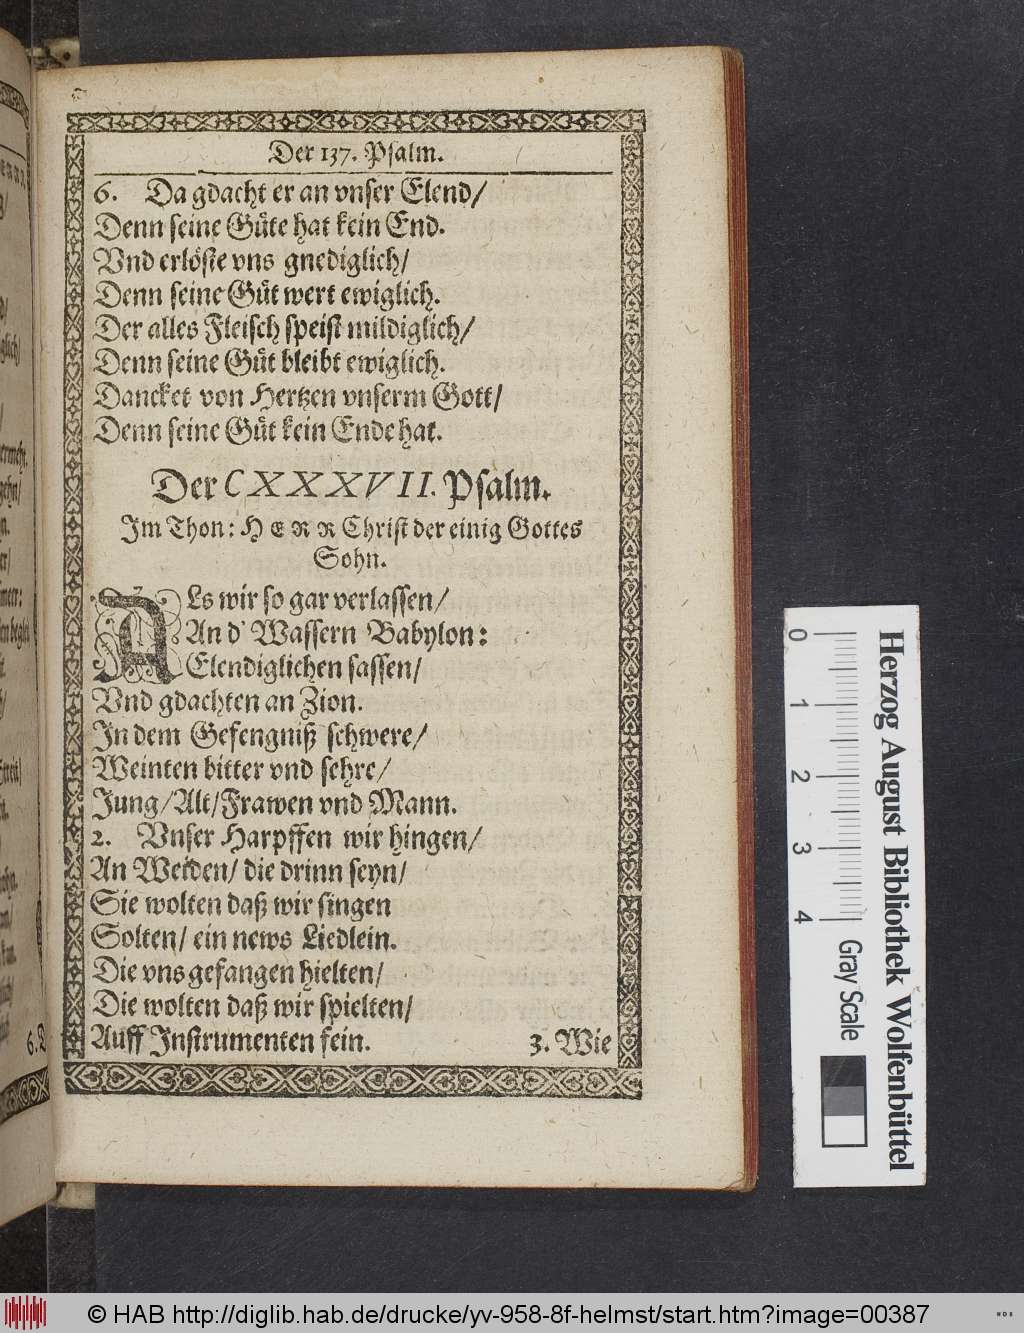 Der 137. Psalm.
6. Da gdacht er an vnser Elend/
Denn seine Güte hat kein End.
Vnd erlöste vns gnediglich/
Denn seine Güt wert ewiglich.
Der alles Fleisch speist mildiglich/
Denn seine Güt bleibt ewiglich.
Dancket von Hertzen vnserm Gott/
Denn seine Güt kein Ende hat.
Der CXXXVII. Psalm.
Im Thon: HERR Christ der einig Gottes
Sohn.
ALs wir so gar verlassen/
An d' Wassern Babylon:
Elendiglichen sassen/
Vnd gdachten an Zion.
In dem Gefengniß schwere/
Weinten bitter vnd sehre/
Jung/ Alt/ Frawen vnd Mann.
2. Vnser Harpffen wir hingen/
An Weiden/ die drinn seyn/
Sie wolten daß wir singen
Solten/ ein news Liedlein.
Die vns gefangen hielten/
Die wolten daß wir spielten/
Auff Instrumenten fein.
3. Wie
6. D
0 1 2 3 4
Herzog August Bibliothek Wolfenbüttel
Gray Scale
© HAB http://diglib.hab.de/drucke/yv-958-8f-helmst/start.htm?image=00387